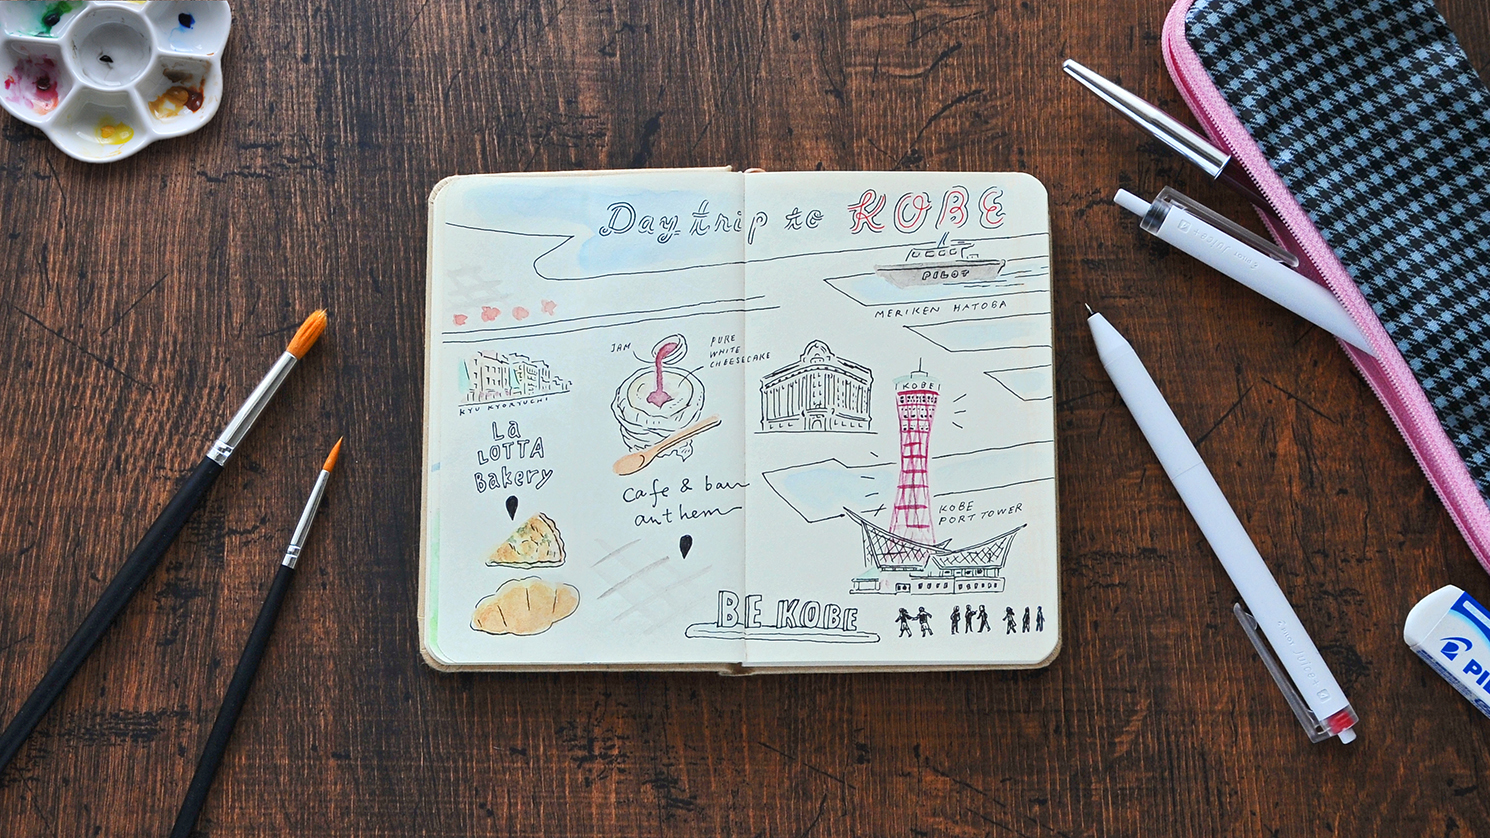 Day trip to KOBE
PILOT
MERIKEN HATOBA
JAM
PURE
WHITE
CHEESECAKE
KYU KYORYUCHI
La
LOTTA
Bakery
Cafe & bar
anthem
KOBE
KOBE
PORT TOWER
BE KOBE